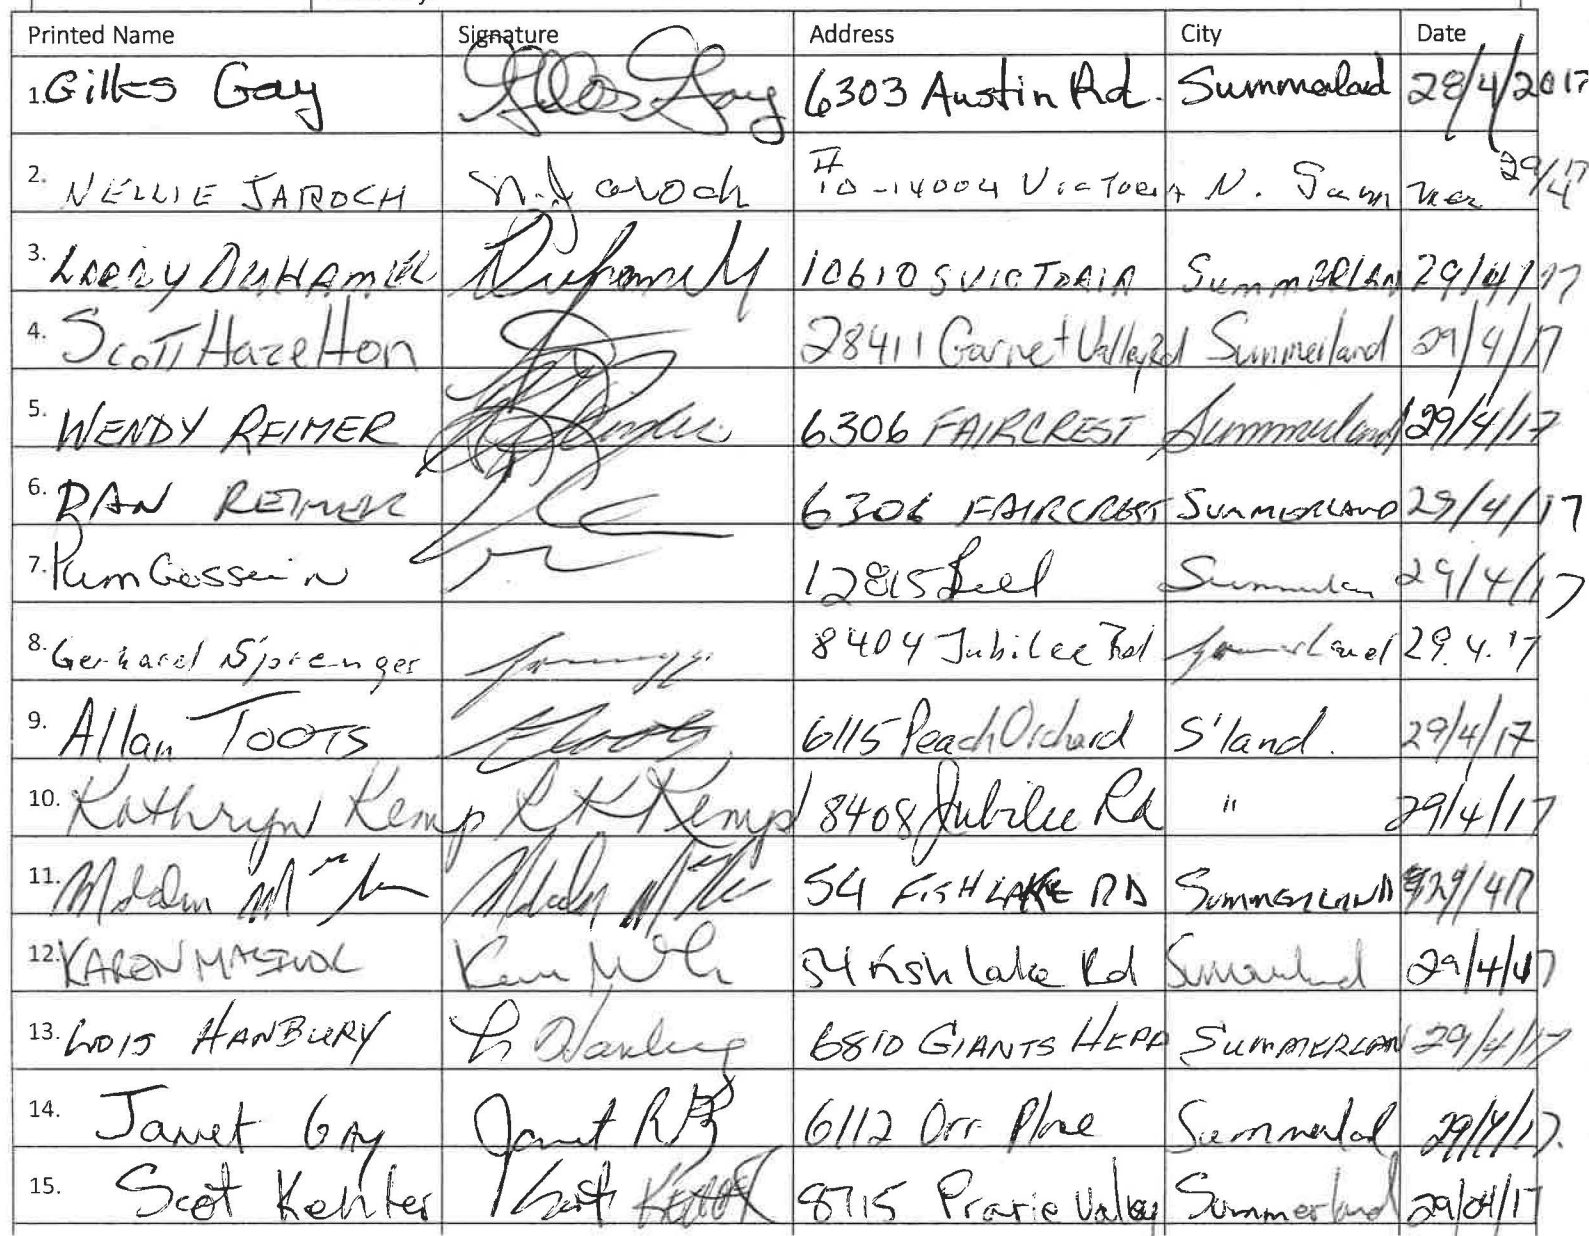 Printed Name Signature Address City Date
1. Gilles Gay Gilles Gay 6303 Austin Rd. Summerland 28/4/2017
2. NELLIE JAROCH N. Jaroch #10-14004 VICTORIA N. Summer 29/4/17
3. LARRY DUHAMEL Duhamel 10610 S VICTORIA SUMMERLAN 29/4/17
4. Scott Hazelton 28411 Garnet Valley Rd Summerland 29/4/17
5. WENDY REIMER 6306 FAIRCREST Summerland 29/4/17
6. DAN REIMER 6306 FAIRCREST SUMMERLAND 29/4/17
7. Pam Gossein 12815 29/4/17
8. Gerhard Sprenger 8404 Jubilee Rd Summerland 29.4.17
9. Allan TOOTS 6115 Peach Orchard S'land. 29/4/17
10. Kathryn Kemp K Kemp 8408 Jubilee Rd " 29/4/17
11. Malcolm Malcolm 54 FISH LAKE RD SUMMERLAND 29/4/17
12. KAREN 54 Fish Lake Rd Summerland 29/4/17
13. LOIS HANBURY L Hanbury 6810 GIANTS HEAD SUMMERLAN 29/4/17
14. Janet GAY Janet 6112 Orr Place Summerland 29/4/17.
15. Scot Kehler Scot 8715 Prarie Valley Summerland 29/04/17